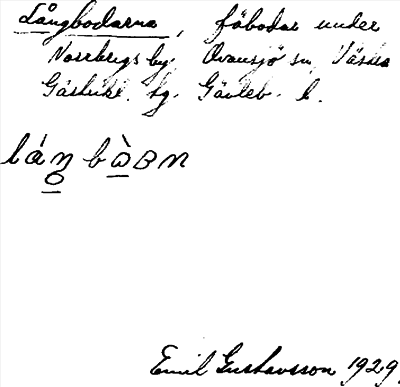 Långbodarna, fäbodar under
Norrbergs by, Ovansjö sn, Västra
Gästrikl. tg. Gävleb. l.
Emil Gustavsson 1929.